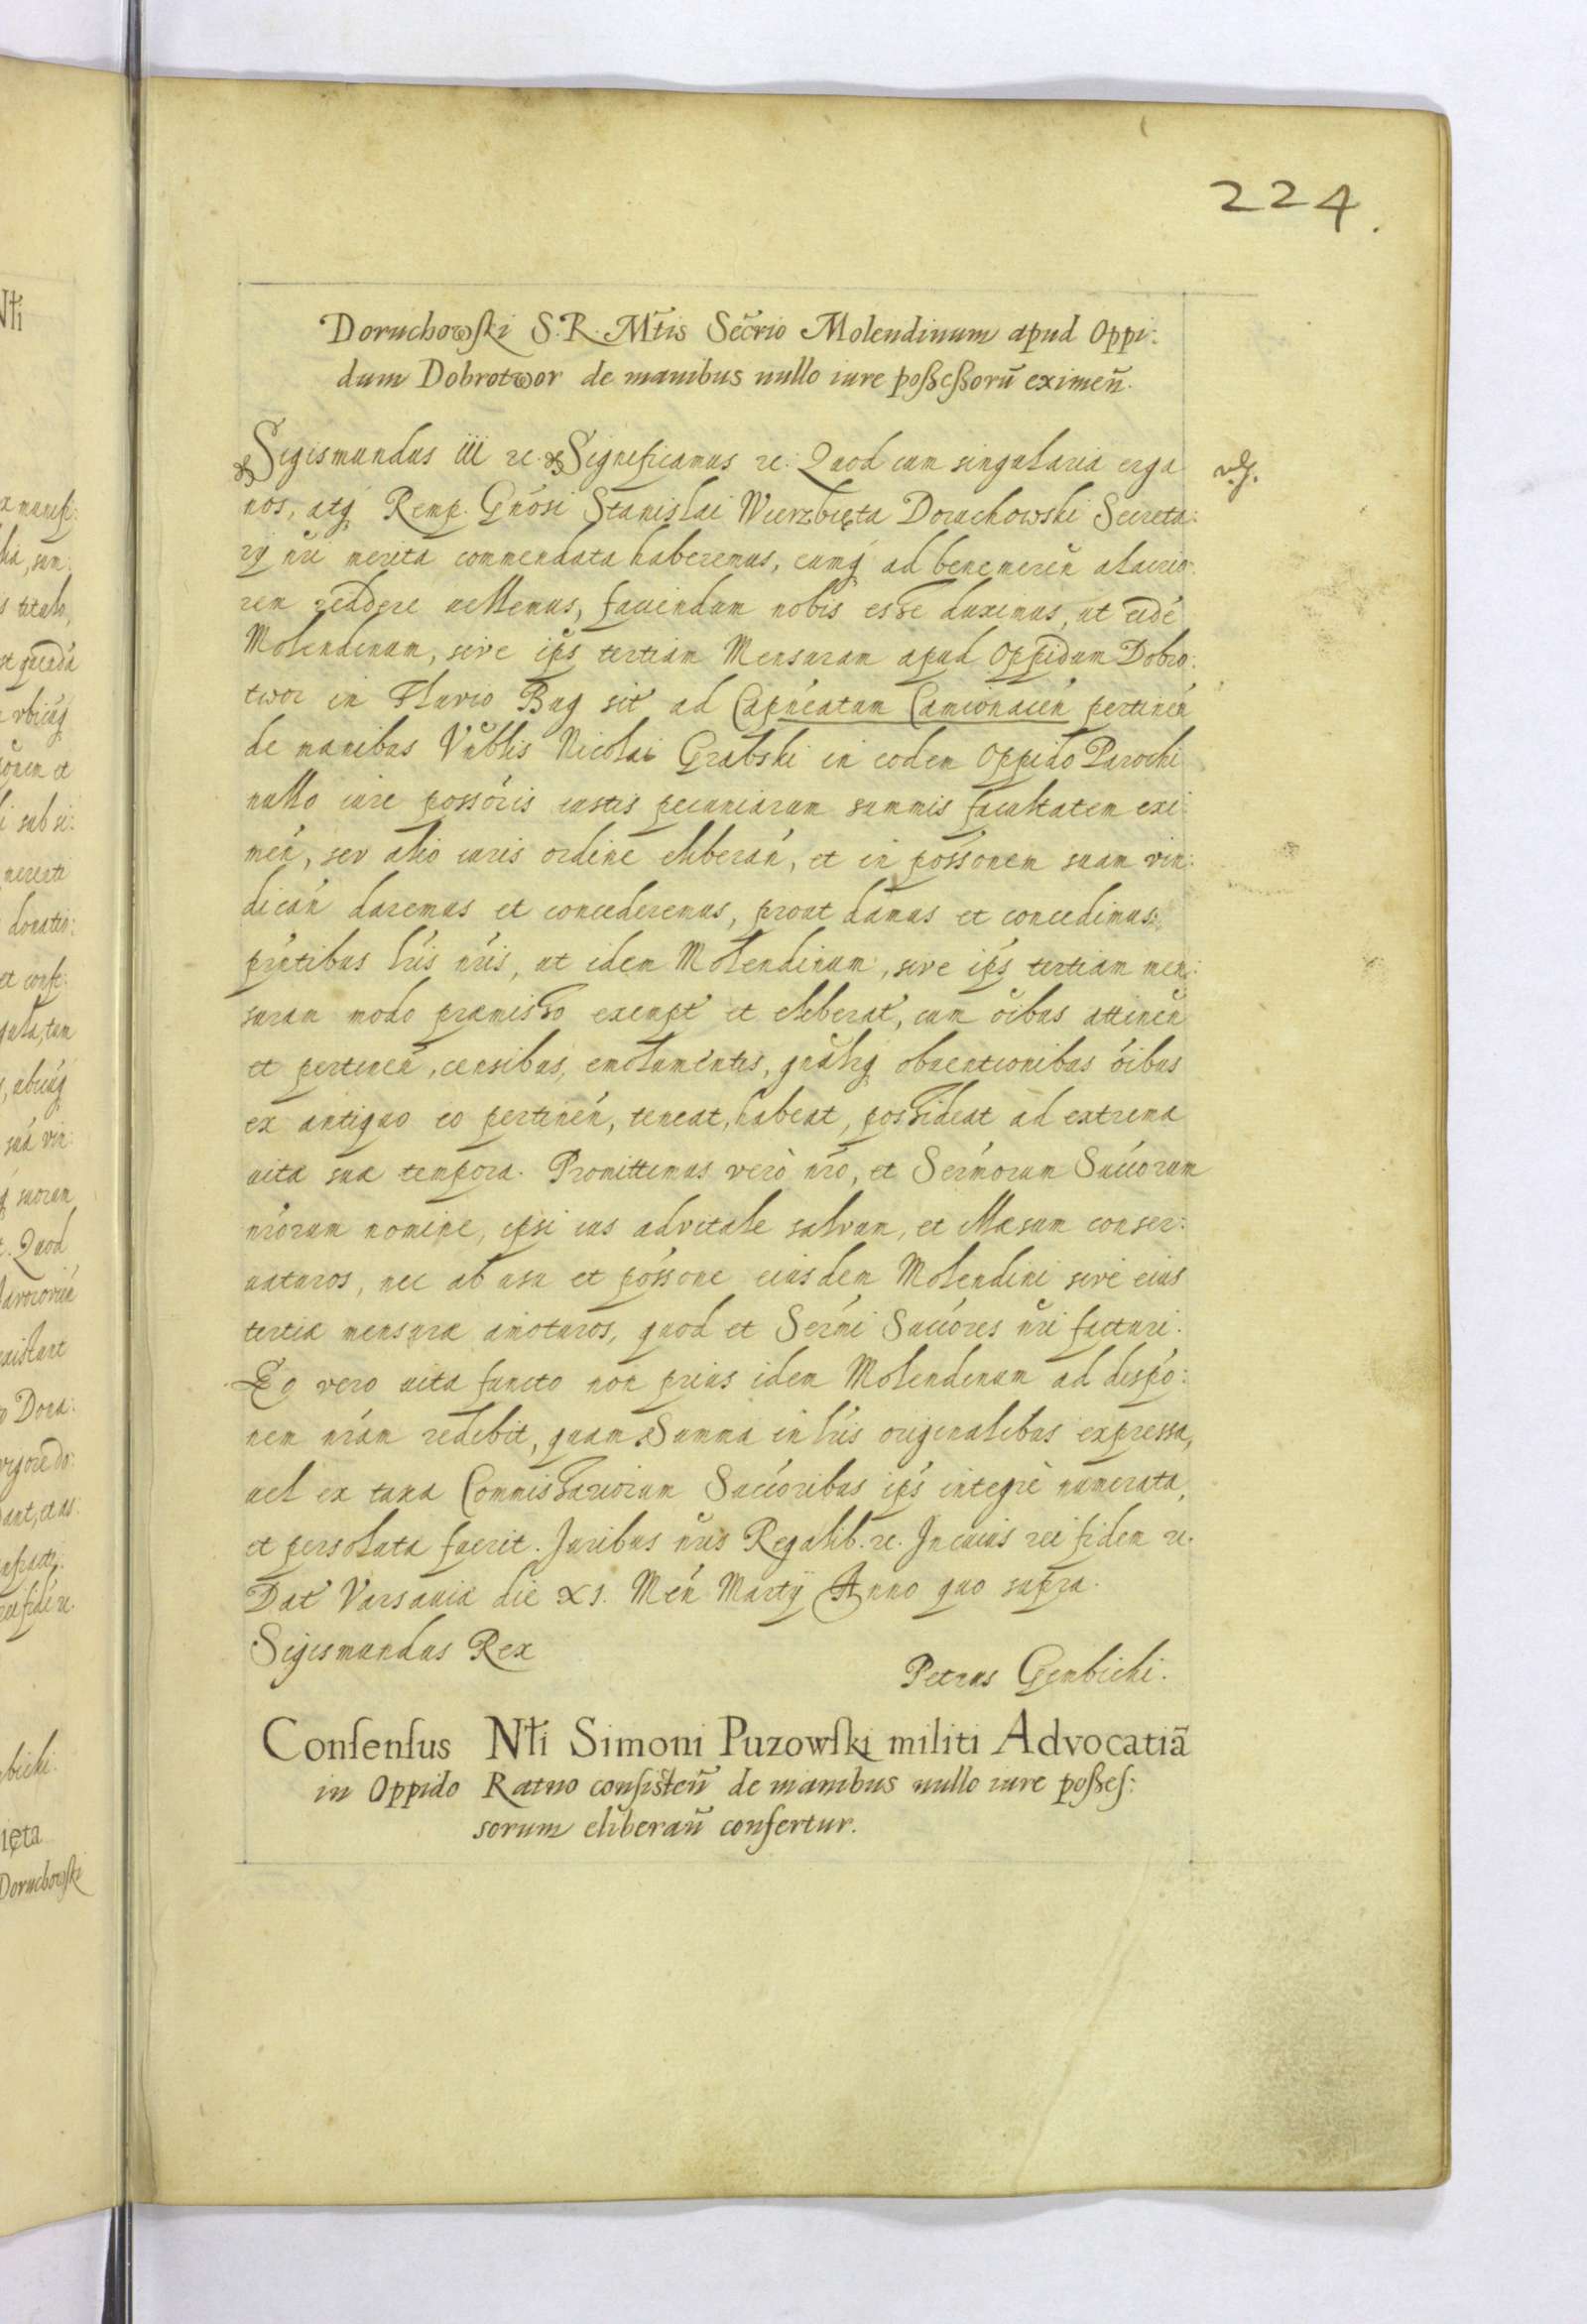 224.
Doruchowſki S. R. Mtis Secrio Molendinum apud Oppi:
dum Dobrotwor de manibus nullo iure poßeßorũ eximeñ.
Sigismundus iii rc. Significamus rc. Quod cum singularia erga
nos, atq Remp. Gnosi Stanislai Wierzbięta Doruchowski Secreta:
rÿ nri merita commendata haberemus, eumq ad benemereñ alacrio:
rem reddere uellemus, fauendum nobis esse duximus, ut eidé
Molendinum, sive ips tertiam Mensuram apud Oppidum Dobro:
twor in Fluvio Bug sit ad Capneatum Camionacen pertinen
de manibus Vnblis Nicolai Grabski in eodem Oppido Parochi
nullo iure possoris iustis pecuniarum summis facultatem exi:
men, sev alio iuris ordine eliberan, et in possonem suam vin:
dican daremus et concederemus, prout damus et concedimus
pntibus lris nris, ut idem Molendinum, sive ips tertiam men:
suram modo præmisso exempt et eliberat, cum oibus attinen
et pertinen, censibus, emolumentis, gnaliq obuentionibus oibus
ex antiquo eo pertinen, teneat, habeat, possideat ad extrema
uitæ suæ tempora. Promittimus verò nro, et Sermorum Succorum
nrorum nomine, ipsi ius advitale salvum, et illæsum conser:
uaturos, nec ab usu et possone eiusdem Molendini sive eius
tertiæ mensuræ amoturos, quod et Sermi Succores nri facturi.
Eo vero uita functo non prius idem Molendinum ad dispo:
nem nram redibit, quam Summa in lris originalibus expressa,
uel ex taxa Commissariorum Succoribus ips integrè numerata,
et persoluta fuerit. Juribus nris Regalib. rc. In cuius rei fidem rc.
Dat Varsauiæ die XI. Men Martÿ Anno quo supra.
Sigismundus Rex
Petrus Gembicki.
Conſenſus Nłi Simoni Puzowſki militi Advocatiã
in Oppido Ratno conſiſteñ de manibus nullo iure poßeſ:
sorum eliberañ confertur.